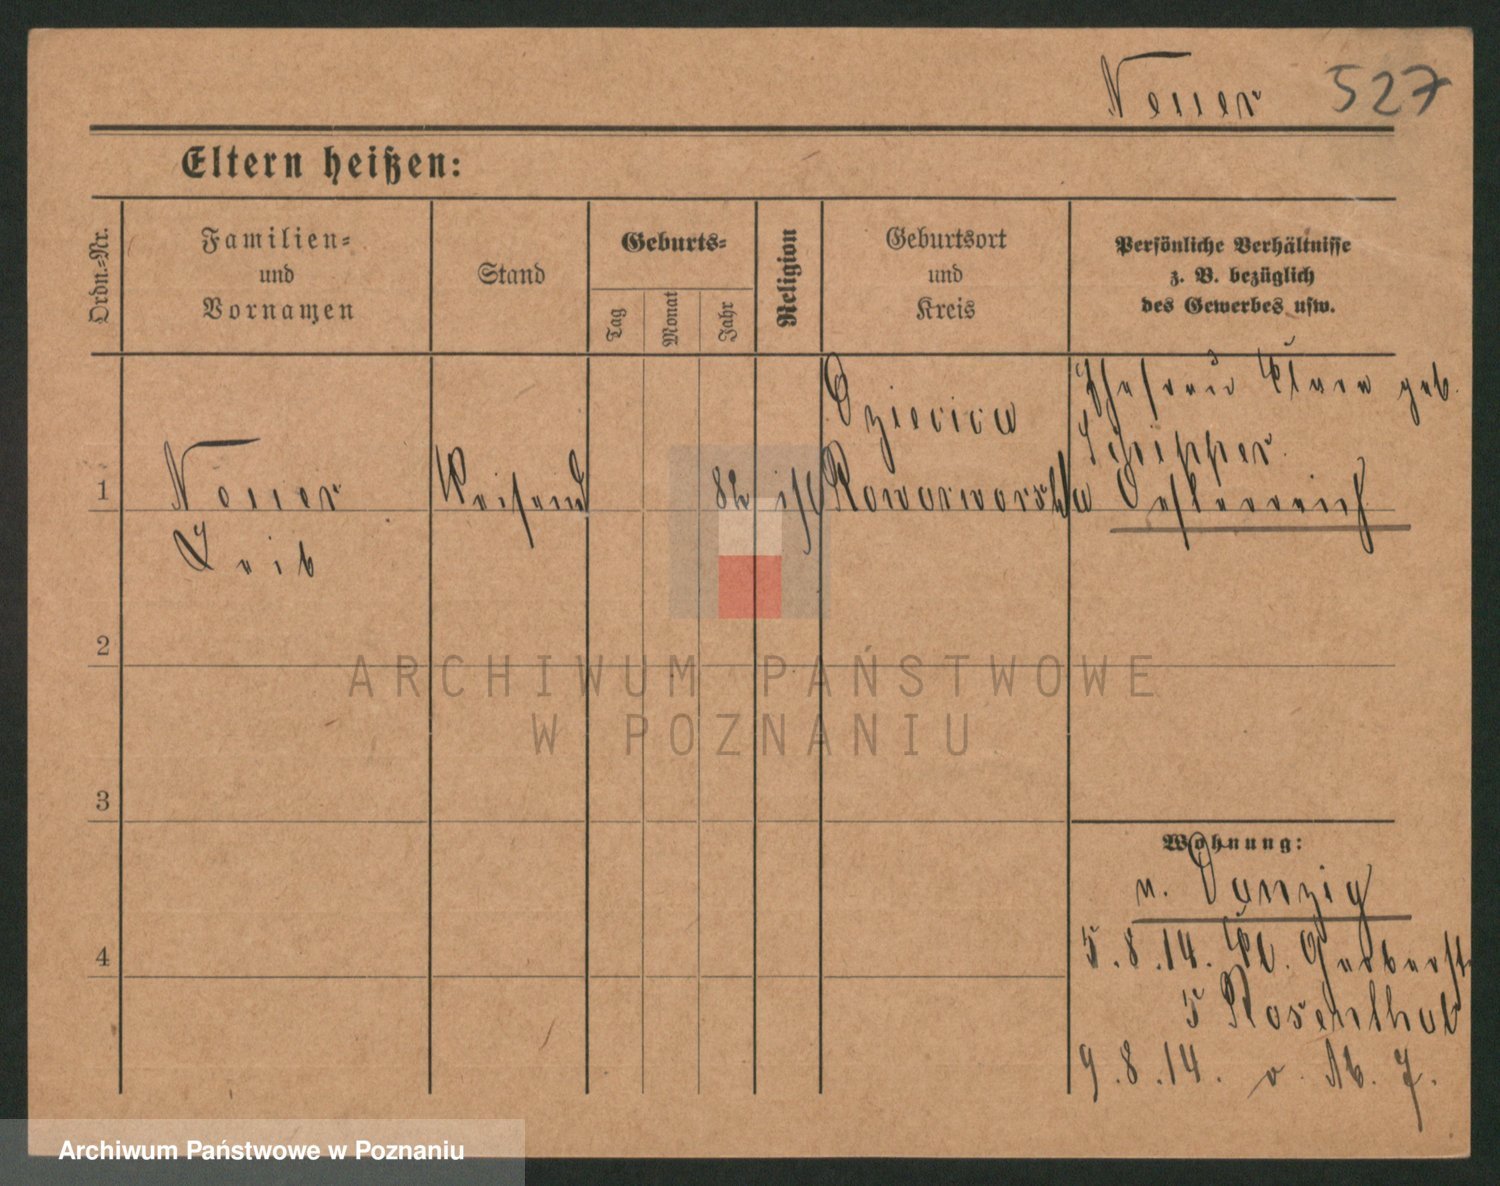 Neuer 527
Eltern heißen:
Ordn.-Nr.
Familien-
und
Vornamen
Stand
Geburts-
Tag
Monat
Jahr
Religion
Geburtsort
und
Kreis
Persönliche Verhältnisse
z. B. bezüglich
des Gewerbes usw.
1
Neuer
Leib
82
isr
Ehefrau Klara geb.
Schipper
Oesterreich
2
3
4
Wohnung:
n. Danzig
5.8.14. Kl. Gerberstr
5
9.8.14. v. Ab. J.
ARCHIWUM PAŃSTWOWE
W POZNANIU
Archiwum Państwowe w Poznaniu